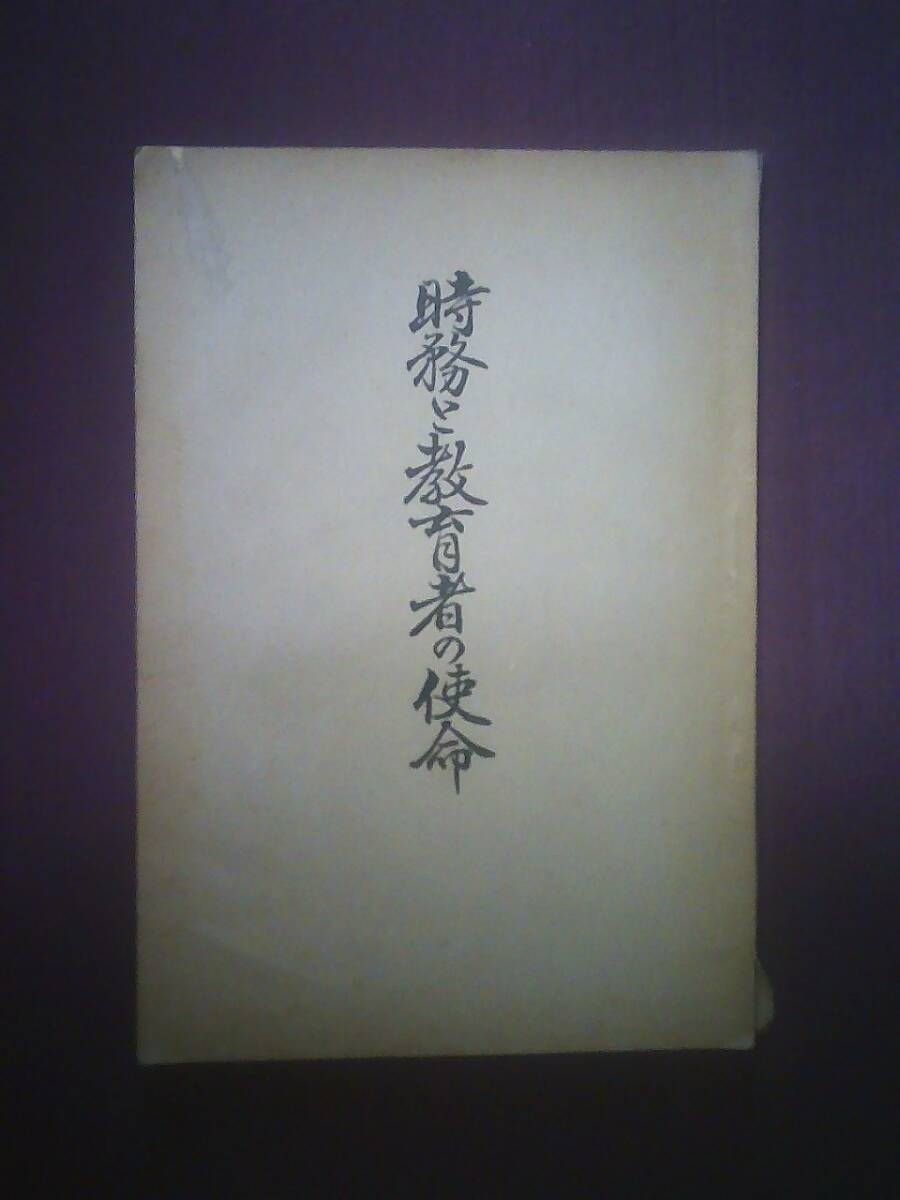 時務と教育者の使命